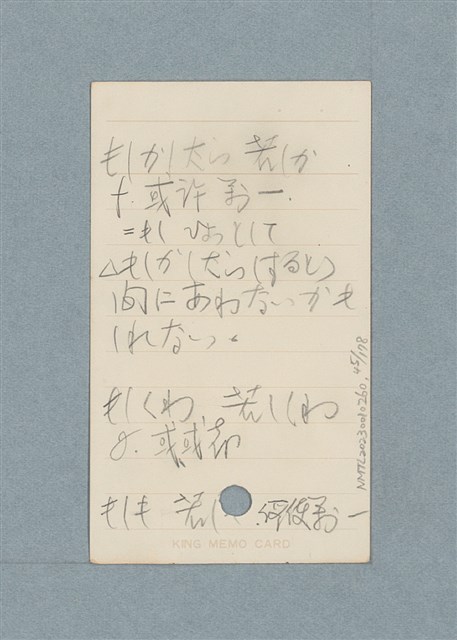 もしかしたら 若しか
或许 萬一.
=もし ひょっとして
△もしかしたら(すると)
間にあわないかも
しれない。
もしくわ、若しくわ
或 或者
もしも 若し 萬一
KING MEMO CARD
NMTL20230010260, 45/178